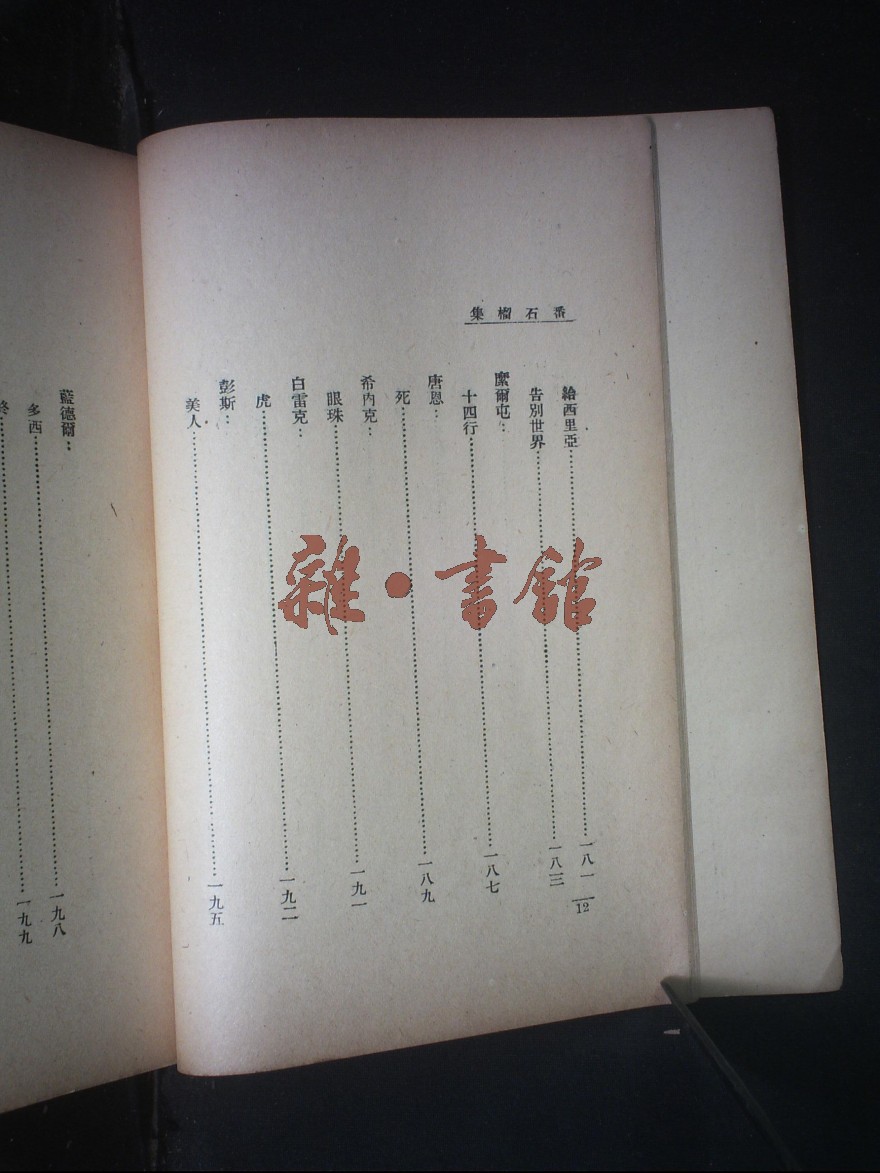 番石榴集
給西里亞……一八一
告別世界……一八三
麋爾屯：
十四行……一八七
唐恩：
死……一八九
希內克：
眼珠……一九一
白雷克：
虎……一九二
彭斯：
美人……一九五
12
藍德爾：
多西……一九八
終……一九九
雜·書館